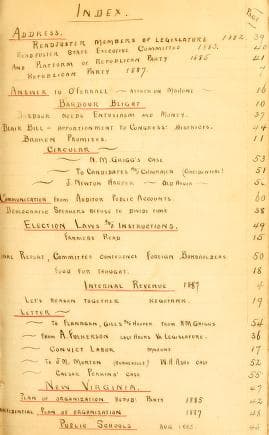 INDEX. Page
ADDRESS.
READJUSTER MEMBERS OF LEGISLATURE 1882. 39
READJUSTER STATE EXECUTIVE COMMITTEE 1883. 40
AND PLATFORM OF REPUBLICAN PARTY 1885 41
REPUBLICAN PARTY 1887.
ANSWER TO O'FERRALL ~ ATTACK ON MAHONE ~ 16
BARBOUR BLIGHT 10
BARBOUR NEEDS ENTHUSIASM AND MONEY. 37
BLAIR BILL ~ APPORTIONMENT TO CONGRESS: DISTRICTS. 44
BROKEN PROMISES. 11
CIRCULAR ~
~ N.M. GRIGG'S CASE 53
~ TO CANDIDATES AND CHAIRMEN (CONFIDENTIAL) 51
~ J. NEWTON HARPER ~ OLD 52
COMMUNICATION FROM AUDITOR PUBLIC ACCOUNTS. 60
DEMOCRATIC SPEAKERS REFUSE TO DIVIDE TIME 38
ELECTION LAWS AND INSTRUCTIONS. 49
FARMERS READ 15
REPORT, COMMITTEE CONFERENCE FOREIGN BONDHOLDERS 50
FOOD FOR THOUGHT. 18
INTERNAL REVENUE 1887 4
LET'S REASON TOGETHER 19
LETTER ~
~ TO FLANAGAN, GILES AND FROM N.M. GRIGGS 54
~ FROM A. FULKERSON HOURS VA. LEGISLATURE. 36
~ CONVICT LABOR MAHONE 17
~ TO J.M. MORTON W.H. ASH'S CASE 52
~ CAESAR PERKINS' CASE 55
NEW VIRGINIA. 47
PLAN OF ORGANIZATION REPUB: PARTY 1885 42
PLAN OF ORGANIZATION 1887 43
PUBLIC SCHOOLS AUG 1885.